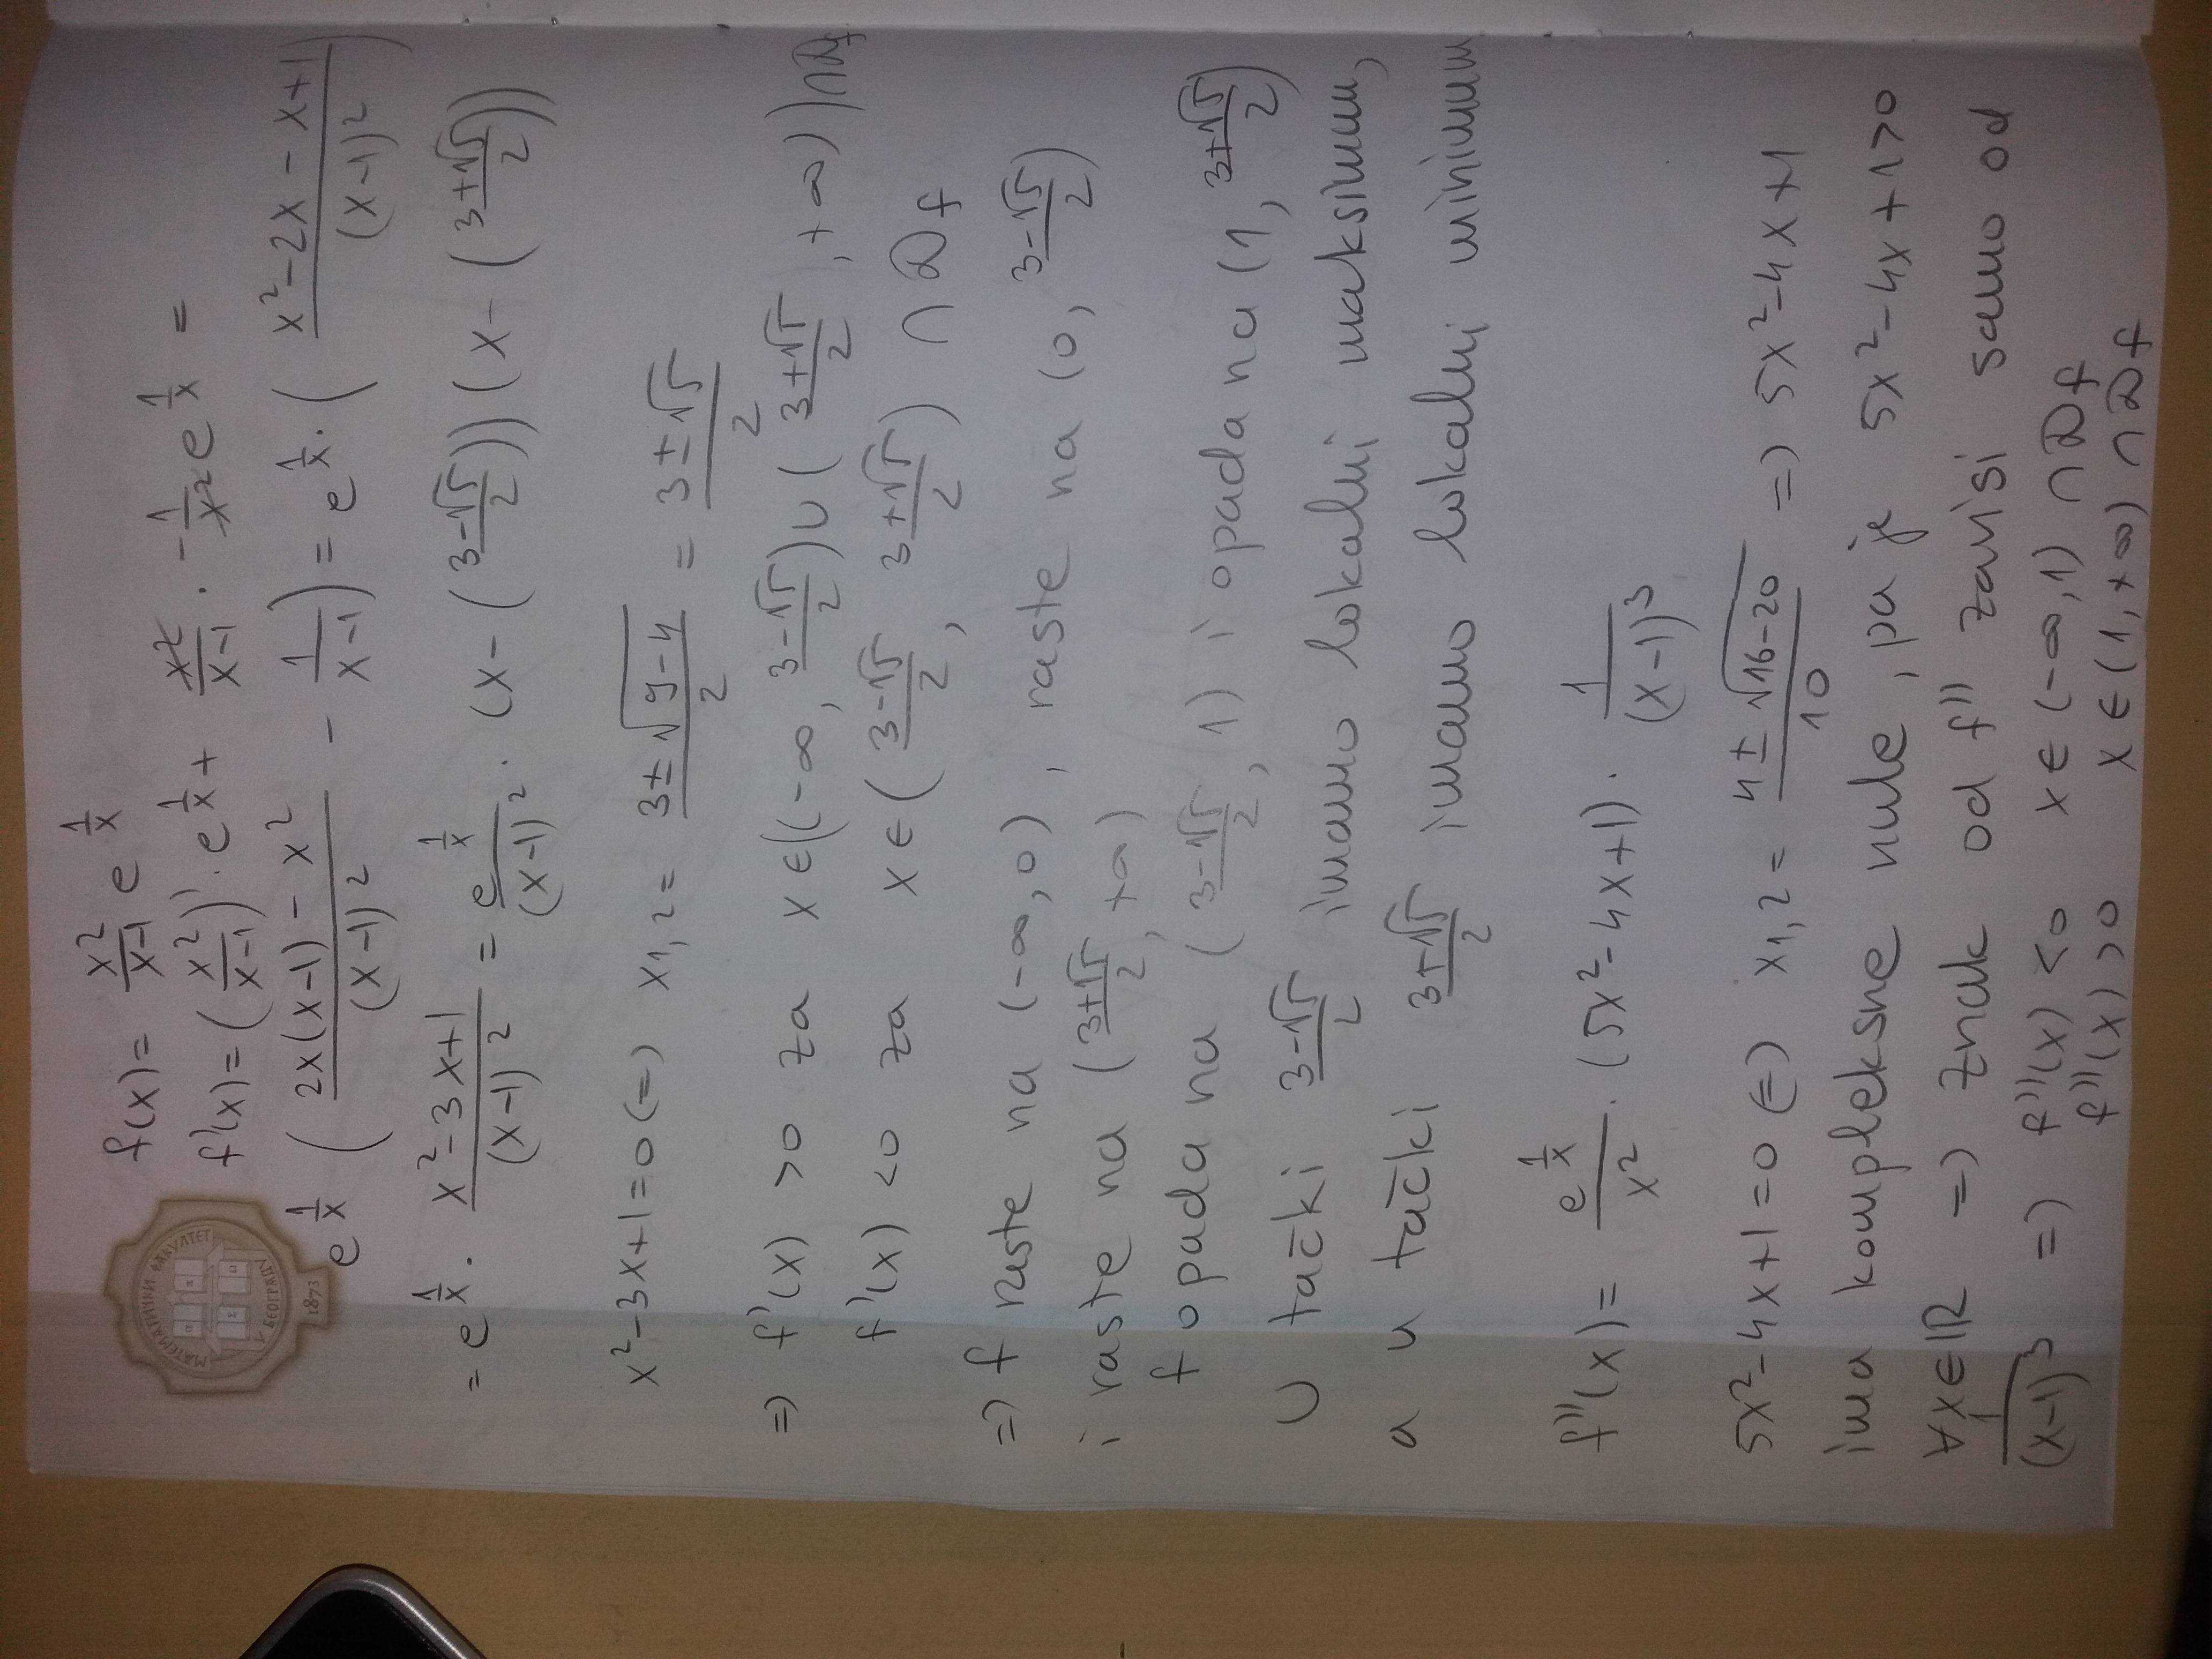 f(x) = x²/(x-1) e^(1/x)
МАТЕМАТИЧКИ ФАКУЛТЕТ
У БЕОГРАДУ
1873
f'(x) = (x²/(x-1))' · e^(1/x) + x²/(x-1) · -1/x² e^(1/x) =
e^(1/x) ( (2x(x-1) - x²)/(x-1)² - 1/(x-1) ) = e^(1/x) · ( (x²-2x-x+1)/(x-1)² )
= e^(1/x) · (x²-3x+1)/(x-1)² = e^(1/x)/(x-1)² · (x-((3-√5)/2)) (x-((3+√5)/2))
x²-3x+1=0 (=) x1,2 = (3±√(9-4))/2 = (3±√5)/2
=) f'(x) >0 za x∈((-∞, (3-√5)/2) ∪ ((3+√5)/2, +∞)) ∩ Df
f'(x) <0 za x∈((3-√5)/2, (3+√5)/2) ∩ Df
=) f raste na (-∞,0), raste na (0, (3-√5)/2)
i raste na ((3+√5)/2, +∞)
f opada na ((3-√5)/2, 1) i opada na (1, (3+√5)/2)
U tački (3-√5)/2 imamo lokalni maksimum,
a u tački (3+√5)/2 imamo lokalni minimum
f''(x) = e^(1/x)/x² · (5x²-4x+1) · 1/(x-1)³
5x²-4x+1=0 (=) x1,2 = (4±√(16-20))/10 =) 5x²-4x+1
ima kompleksne nule, pa je 5x²-4x+1>0
∀x∈ℝ =) znak od f'' zavisi samo od
1/(x-1)³ =) f''(x) <0 x∈(-∞,1) ∩ Df
f''(x) >0 x∈(1,+∞) ∩ Df